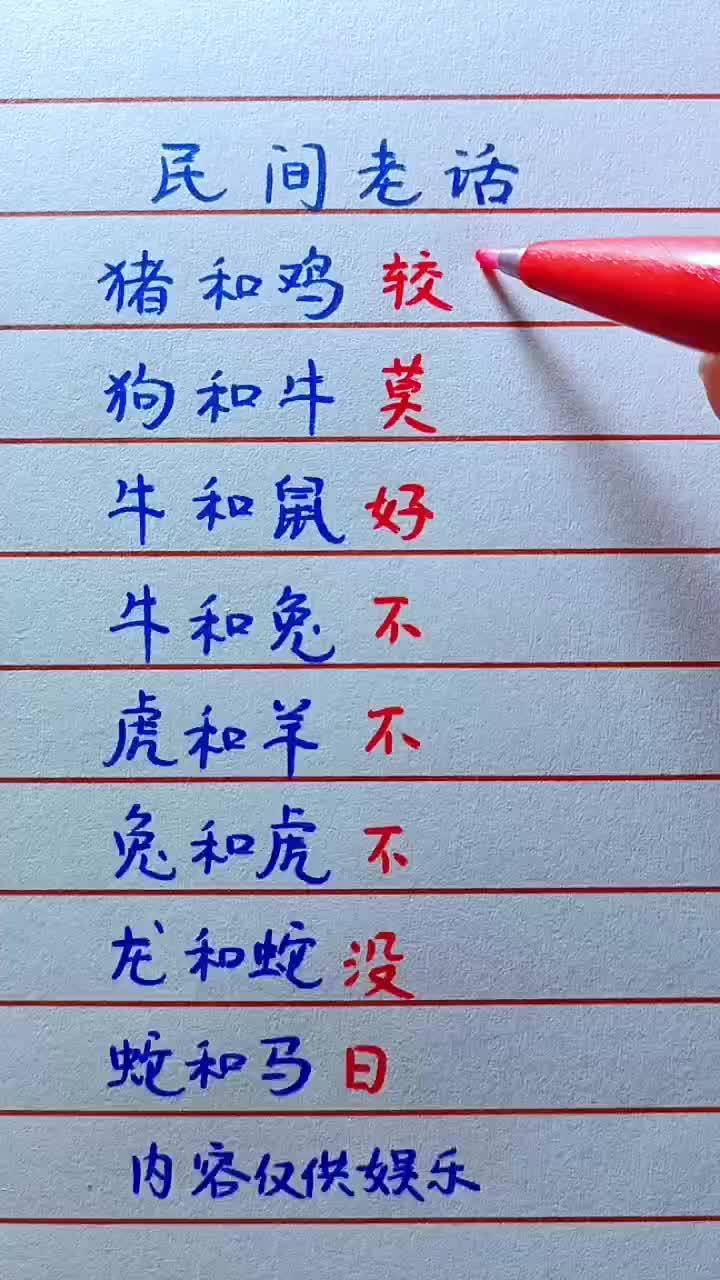 民间老话
猪和鸡较
狗和牛莫
牛和鼠好
牛和兔不
虎和羊不
兔和虎不
龙和蛇没
蛇和马日
内容仅供娱乐